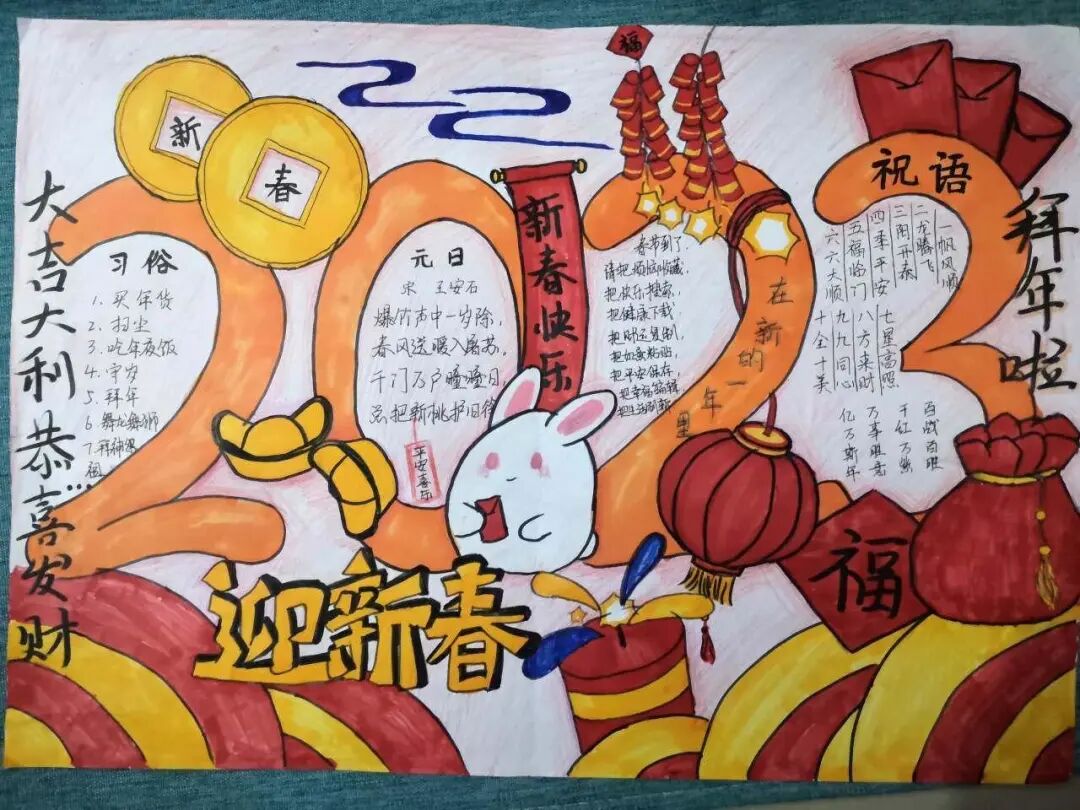 大吉大利恭喜发财
新
春
习俗
1. 买年货
2. 扫尘
3. 吃年夜饭
4. 守岁
5. 拜年
6 舞龙舞狮
7 拜神祭
祖...
元日
宋 王安石
爆竹声中一岁除,
春风送暖入屠苏。
千门万户曈曈日
总把新桃 旧符
平安喜乐
新春快乐
福
春节到了,
请把烦恼收藏,
把快乐搜索,
把健康下载,
把财运复制,
把如意粘贴,
把平安保存,
把幸福编辑
把生活刷新
在新的一年里
祝语
一帆风顺
二龙腾飞
三阳开泰
四季平安
五福临门
六六大顺
七星高照
八方来财
九九同心
十全十美
百战百胜
千红万紫
万事胜意
亿万斯年
拜年啦
福
迎新春